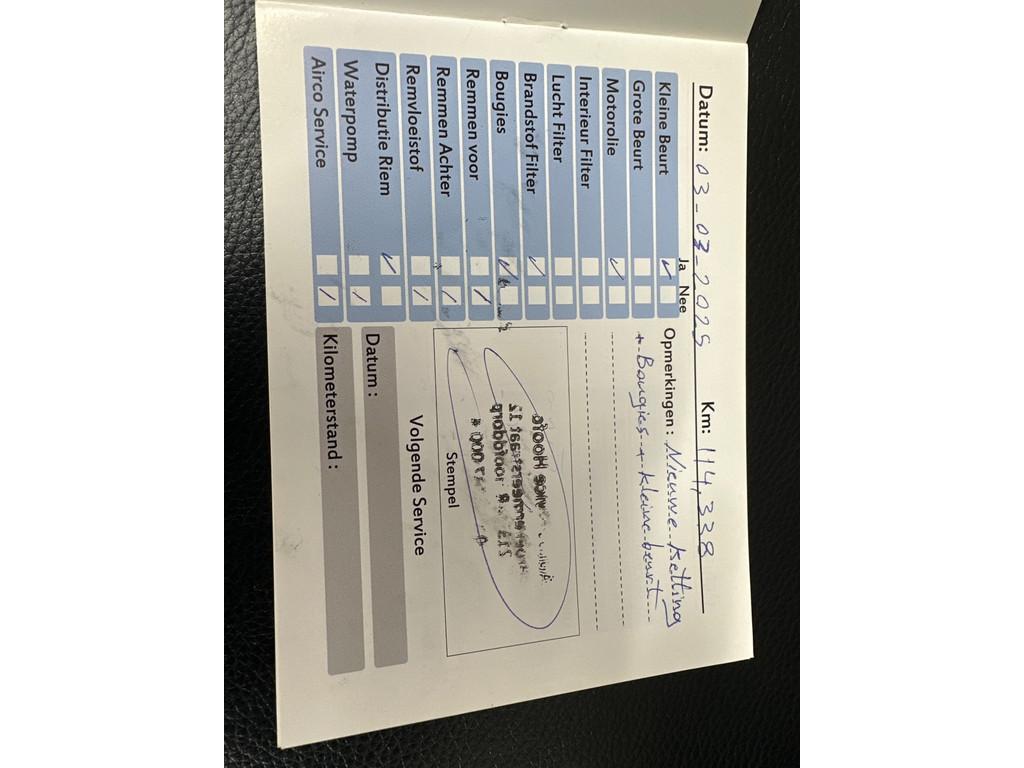 Datum: 03-03-2025 Km: 114,338
Ja Nee
Kleine Beurt
Grote Beurt
Motorolie
Interieur Filter
Lucht Filter
Brandstof Filter
Bougies
Remmen voor
Remmen Achter
Remvloeistof
Distributie Riem
Waterpomp
Airco Service
Opmerkingen: Nieuwe ketting
+ Bougies + kleine beurt
Stempel
Volgende Service
Datum:
Kilometerstand: